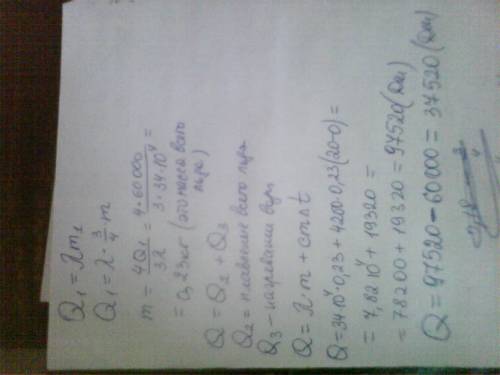 Q₁ = λm₁
Q₁ = λ · 3/4 · m
m = 4Q₁/3λ = 4·60000/3·34·10⁴ =
= 0,23кг (это масса всего
льда)
Q = Q₂ + Q₃
Q₂ = плавление всего льда
Q₃ - нагревание воды
Q = λ·m + cmΔt
Q = 34·10⁴·0,23 + 4200·0,23(20-0) =
= 7,82·10⁴ + 19320 =
= 78200 + 19320 = 97520 (Дж)
Q = 97520 - 60000 = 37520 (Дж)